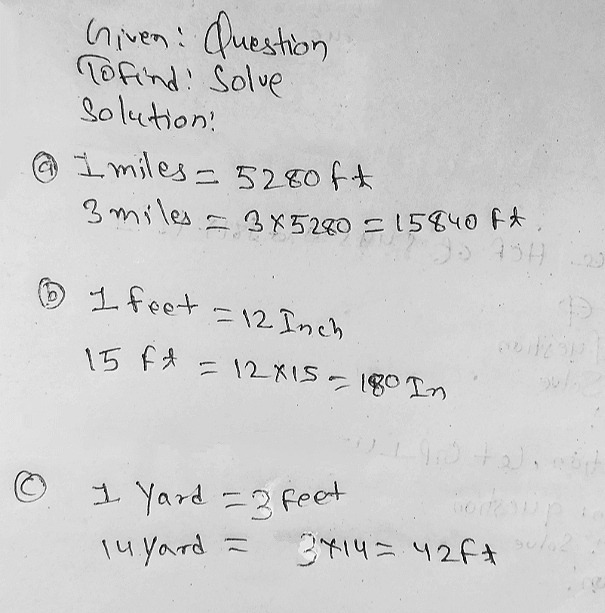 Given: Question
To find: Solve
Solution:
(a) 1 miles = 5280 ft
3 miles = 3x5280 = 15840 ft.
(b) 1 feet = 12 Inch
15 ft = 12x15 = 180 In
(c) 1 Yard = 3 feet
14 yard = 3x14 = 42 ft